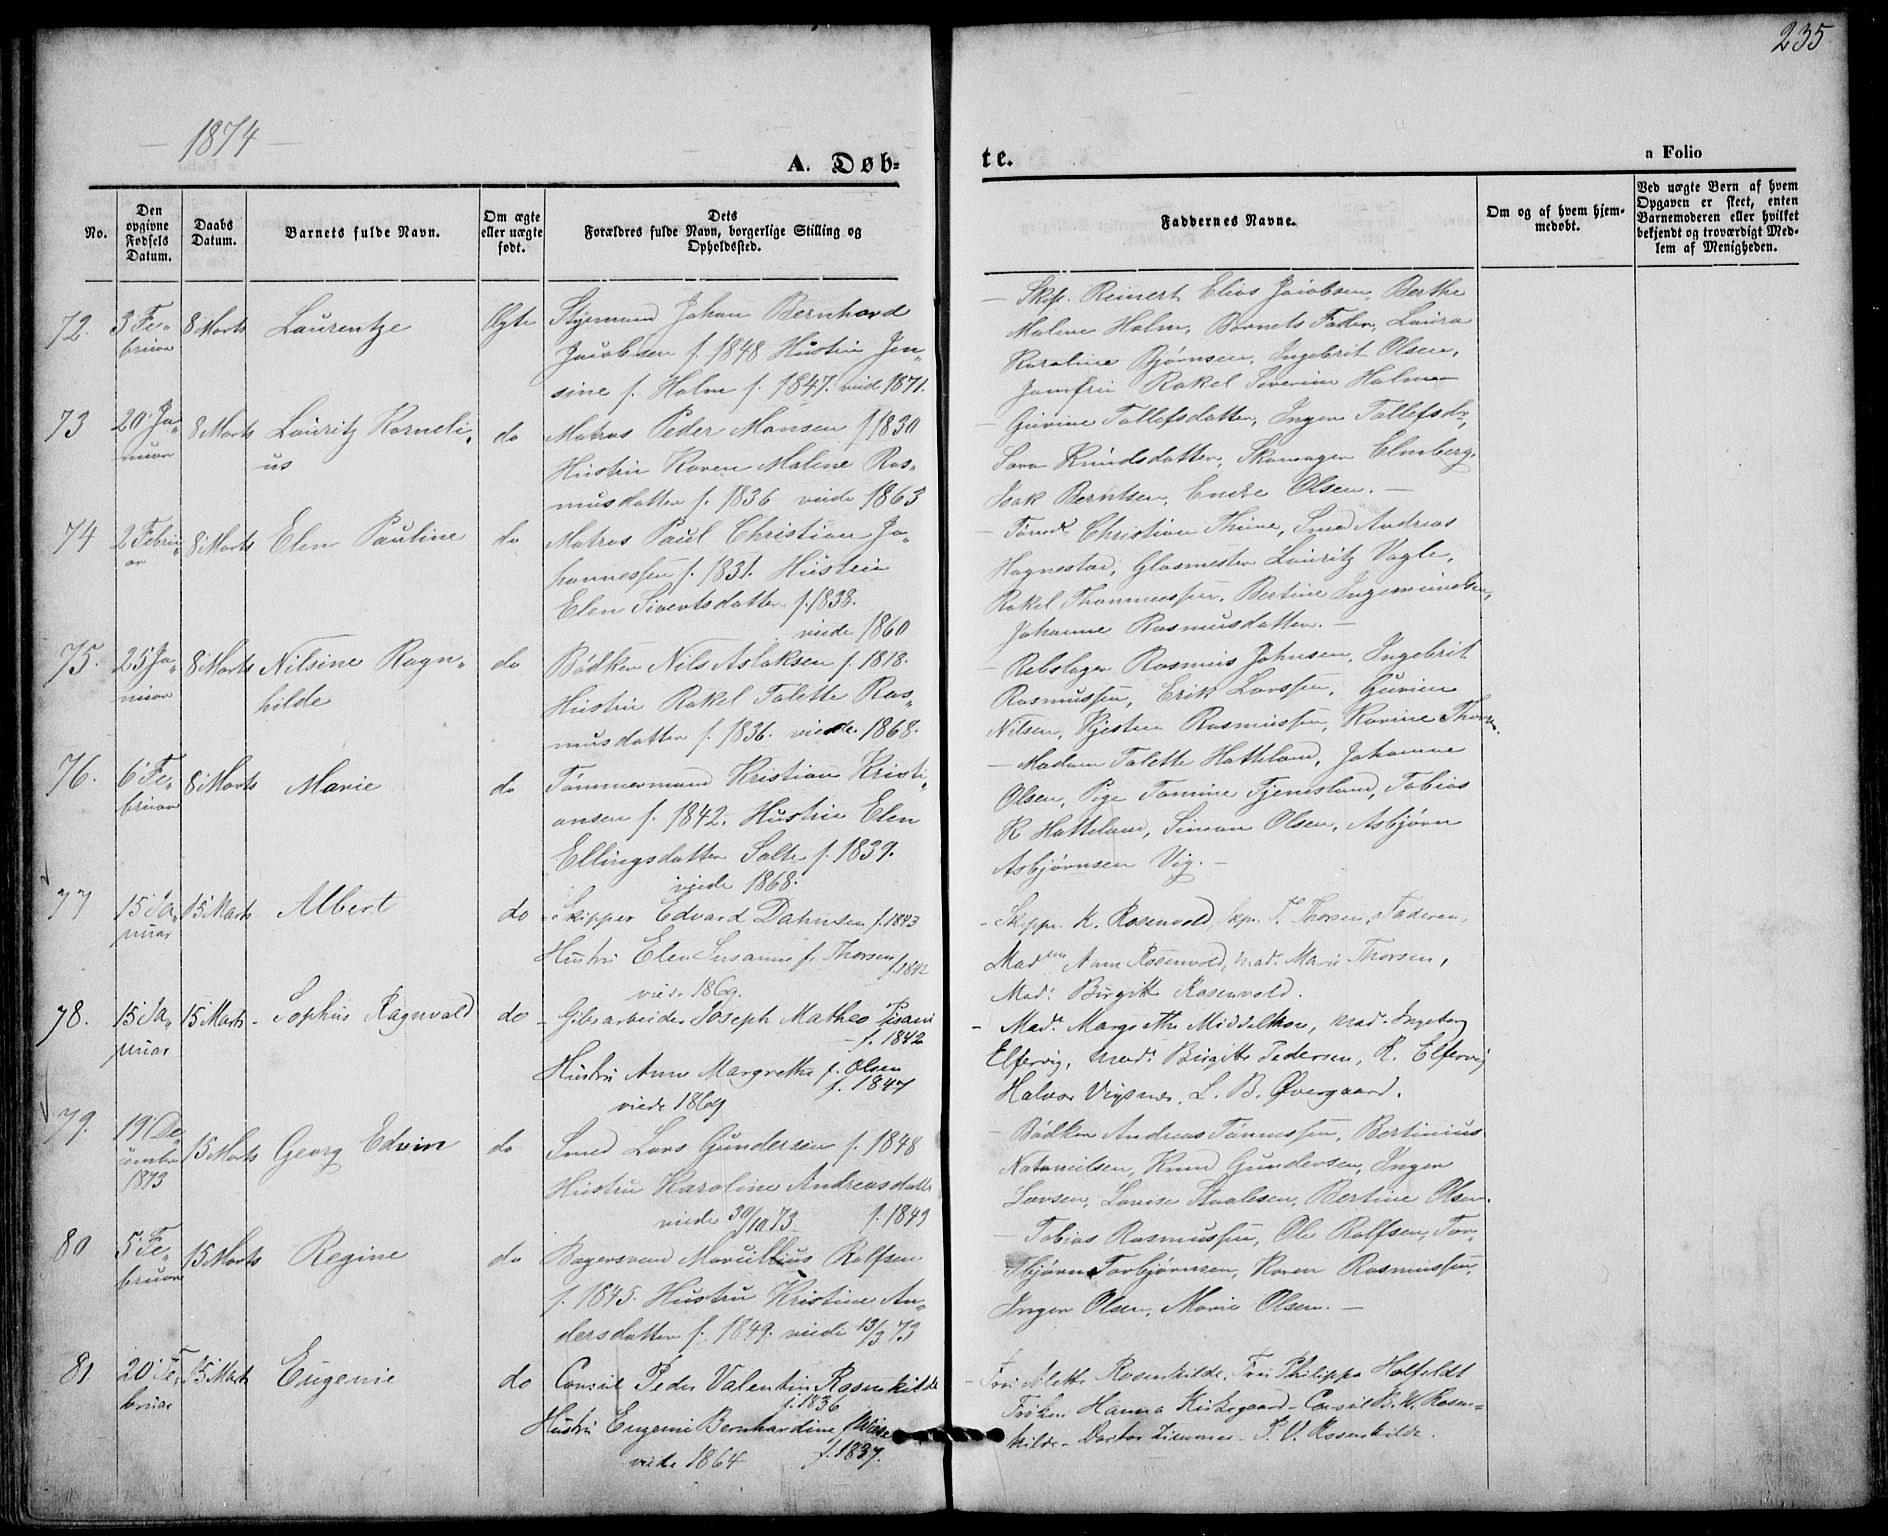 235
1874
A. Døb-
te.
a Folio
No.
Den opgivne Fødsels Datum.
Daabs Datum.
Barnets fulde Navn.
Om ægte eller uægte født.
Dets Forældres fulde Navn, borgerlige Stilling og Opholdssted.
Faddernes Navne.
Om og af hvem hjemmedøbt.
Ved uægte Børn af hvem Opgaven er skeet, enten Barnemoderen eller hvilket bekjendt og troværdigt Medlem af Menigheden.
72. 3 Fe- 8 Marts Laurentze Ægte Styrmand Johan Bernhard
bruar Jacobsen f. 1848 Hustru Jen-
sine f. Holm f. 1847. viede 1871.
Skip. Reinert Elias Jacobsen, Berthe
Malene Holm, Barnets Fader, Laura
Karoline Bjørnsen, Ingebrit Olsen,
Jomfru Rakel Severine Holm
73 20 Ja- 8 Marts Lauritz Korneli- do Matros Peder Monsen f 1830
nuar us Hustru Karen Malene Ras-
musdatter f. 1836 viede 1863
Gurine Tollefsdatter, Inger Tollefsd.,
Sara Knudsdatter, Skomager Elmberg,
Isak Berntsen, Endre Olsen. –
74 2 Febru- 8 Marts Elen Pauline do Matros Paul Christian Jo-
ar hannessen f. 1831. Hustru
Elen Sivertsdatter f. 1838.
viede 1860
Christian Thime, Smed Andreas
Hognestad, Glasmester Lauritz Vagle,
Rakel Thommessen, Bertine Ingemundsen,
Johanne Rasmusdatter. –
75. 25 Ja- 8 Marts Nilsine Ragn- do Bødker Nils Aslaksen f. 1818.
nuar hilde Hustru Rakel Talette Ras-
musdatter f. 1836. viede 1868.
– Rebslager Rasmus Johnsen, Ingebrit
Rasmussen, Erik Larssen, Gurine
Nilsen, Kjesten Rasmussen, Karine
76. 6 Fe- 8 Marts Marie do Tømmermand Kristian Kristi-
bruar ansen f. 1842. Hustru Elen
Ellingsdatter Salte f. 1839.
viede 1868.
– Madam Talette Hatteland, Johanne
Olsen, Pige Tomine Fjermestad, Tobias
K Hatteland, Simon Olsen, Asbjørn
Asbjørnsen Vig. –
77 15 Ja- 15 Marts Albert do Skipper Edvard Dahmsen f. 1843
nuar Hustru Elen Susanne f. Thorsen f. 1842
viede 1869.
– Skippr. K. Rosenvold, T. Thorsen, Faderen,
Madm Anne Rosenvold, Mad. Marie Thorsen,
Mad. Birgitte Rosenvold.
78. 15 Ja- 15 Marts Sophus Ragnvald do Gibsarbeider Joseph Matheo Pisani
nuar f. 1842
Hustru Anne Margrethe f. Olsen
f. 1847
viede 1869
– Mad. Margrethe Middelthon, Mad. Ingeborg
Elfervig, Mad. Birgitte Pedersen, R. Elfervig
Halvor Vigsnæs, L. B. Øvergaard.
79. 19 De- 15 Marts Georg Edvin do Smed Lars Gundersen f. 1848
cember Hustru Karoline Andreasdatter
1873 viede 30/10 73 f. 1849
– Bødker Andreas Tønnessen, Bertinius
Natanielsen, Knud Gundersen, Inger
Larsen, Lovise Staalesen, Bertine Olsen.
80 5 Fe- 15 Marts Regine do Bagersvend Marcellius Rolfsen
bruar f. 1845. Hustru Kristine An-
dersdatter f. 1849. viede 13/3 73
– Tobias Rasmussen, Ole Rolfsen, Tor-
bjørn Torbjørnsen, Karen Rasmussen,
Inger Olsen, Marie Olsen. –
81 20 Fe- 15 Marts Eugenie do Consul Peder Valentin Rosenkilde
bruar f. 1836
Hustru Eugenie Bernhardine Wiese
viede 1864 f. 1837.
– Fru Alette Rosenkilde, Fru Philippa Holfeldt
Frøken Hanna Kirkegaard – Consul B. W. Rosen-
kilde – Doctor Zimmer – P. V. Rosenkilde.